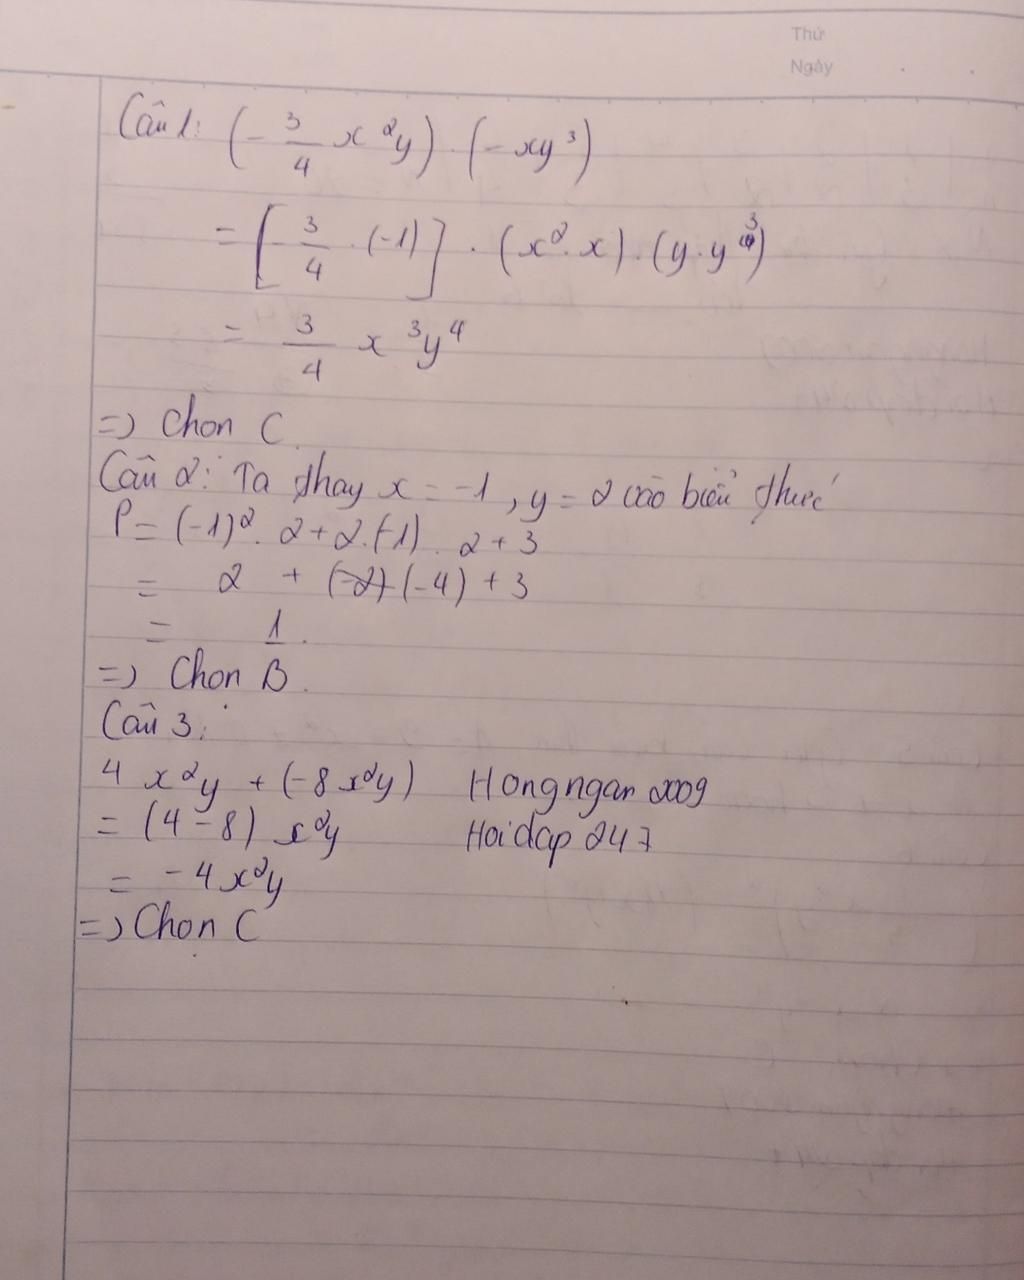 Thứ
Ngày
Câu 1: (- 3/4 x²y) . (- xy³)
= [- 3/4 . (-1)] . (x² . x) . (y . y³)
= 3/4 x³y⁴
=> Chon C.
Câu 2: Ta thay x = -1 , y = 2 vào biểu thức
P = (-1)² . 2 + 2 . (-1) . 2 + 3
= 2 + (-4) + 3
= 1 .
=> Chon B.
Câu 3:
4 x²y + (-8 x²y) Hongngan 2009
= (4 - 8) x²y Hoidap 247
= - 4 x²y
=> Chon C